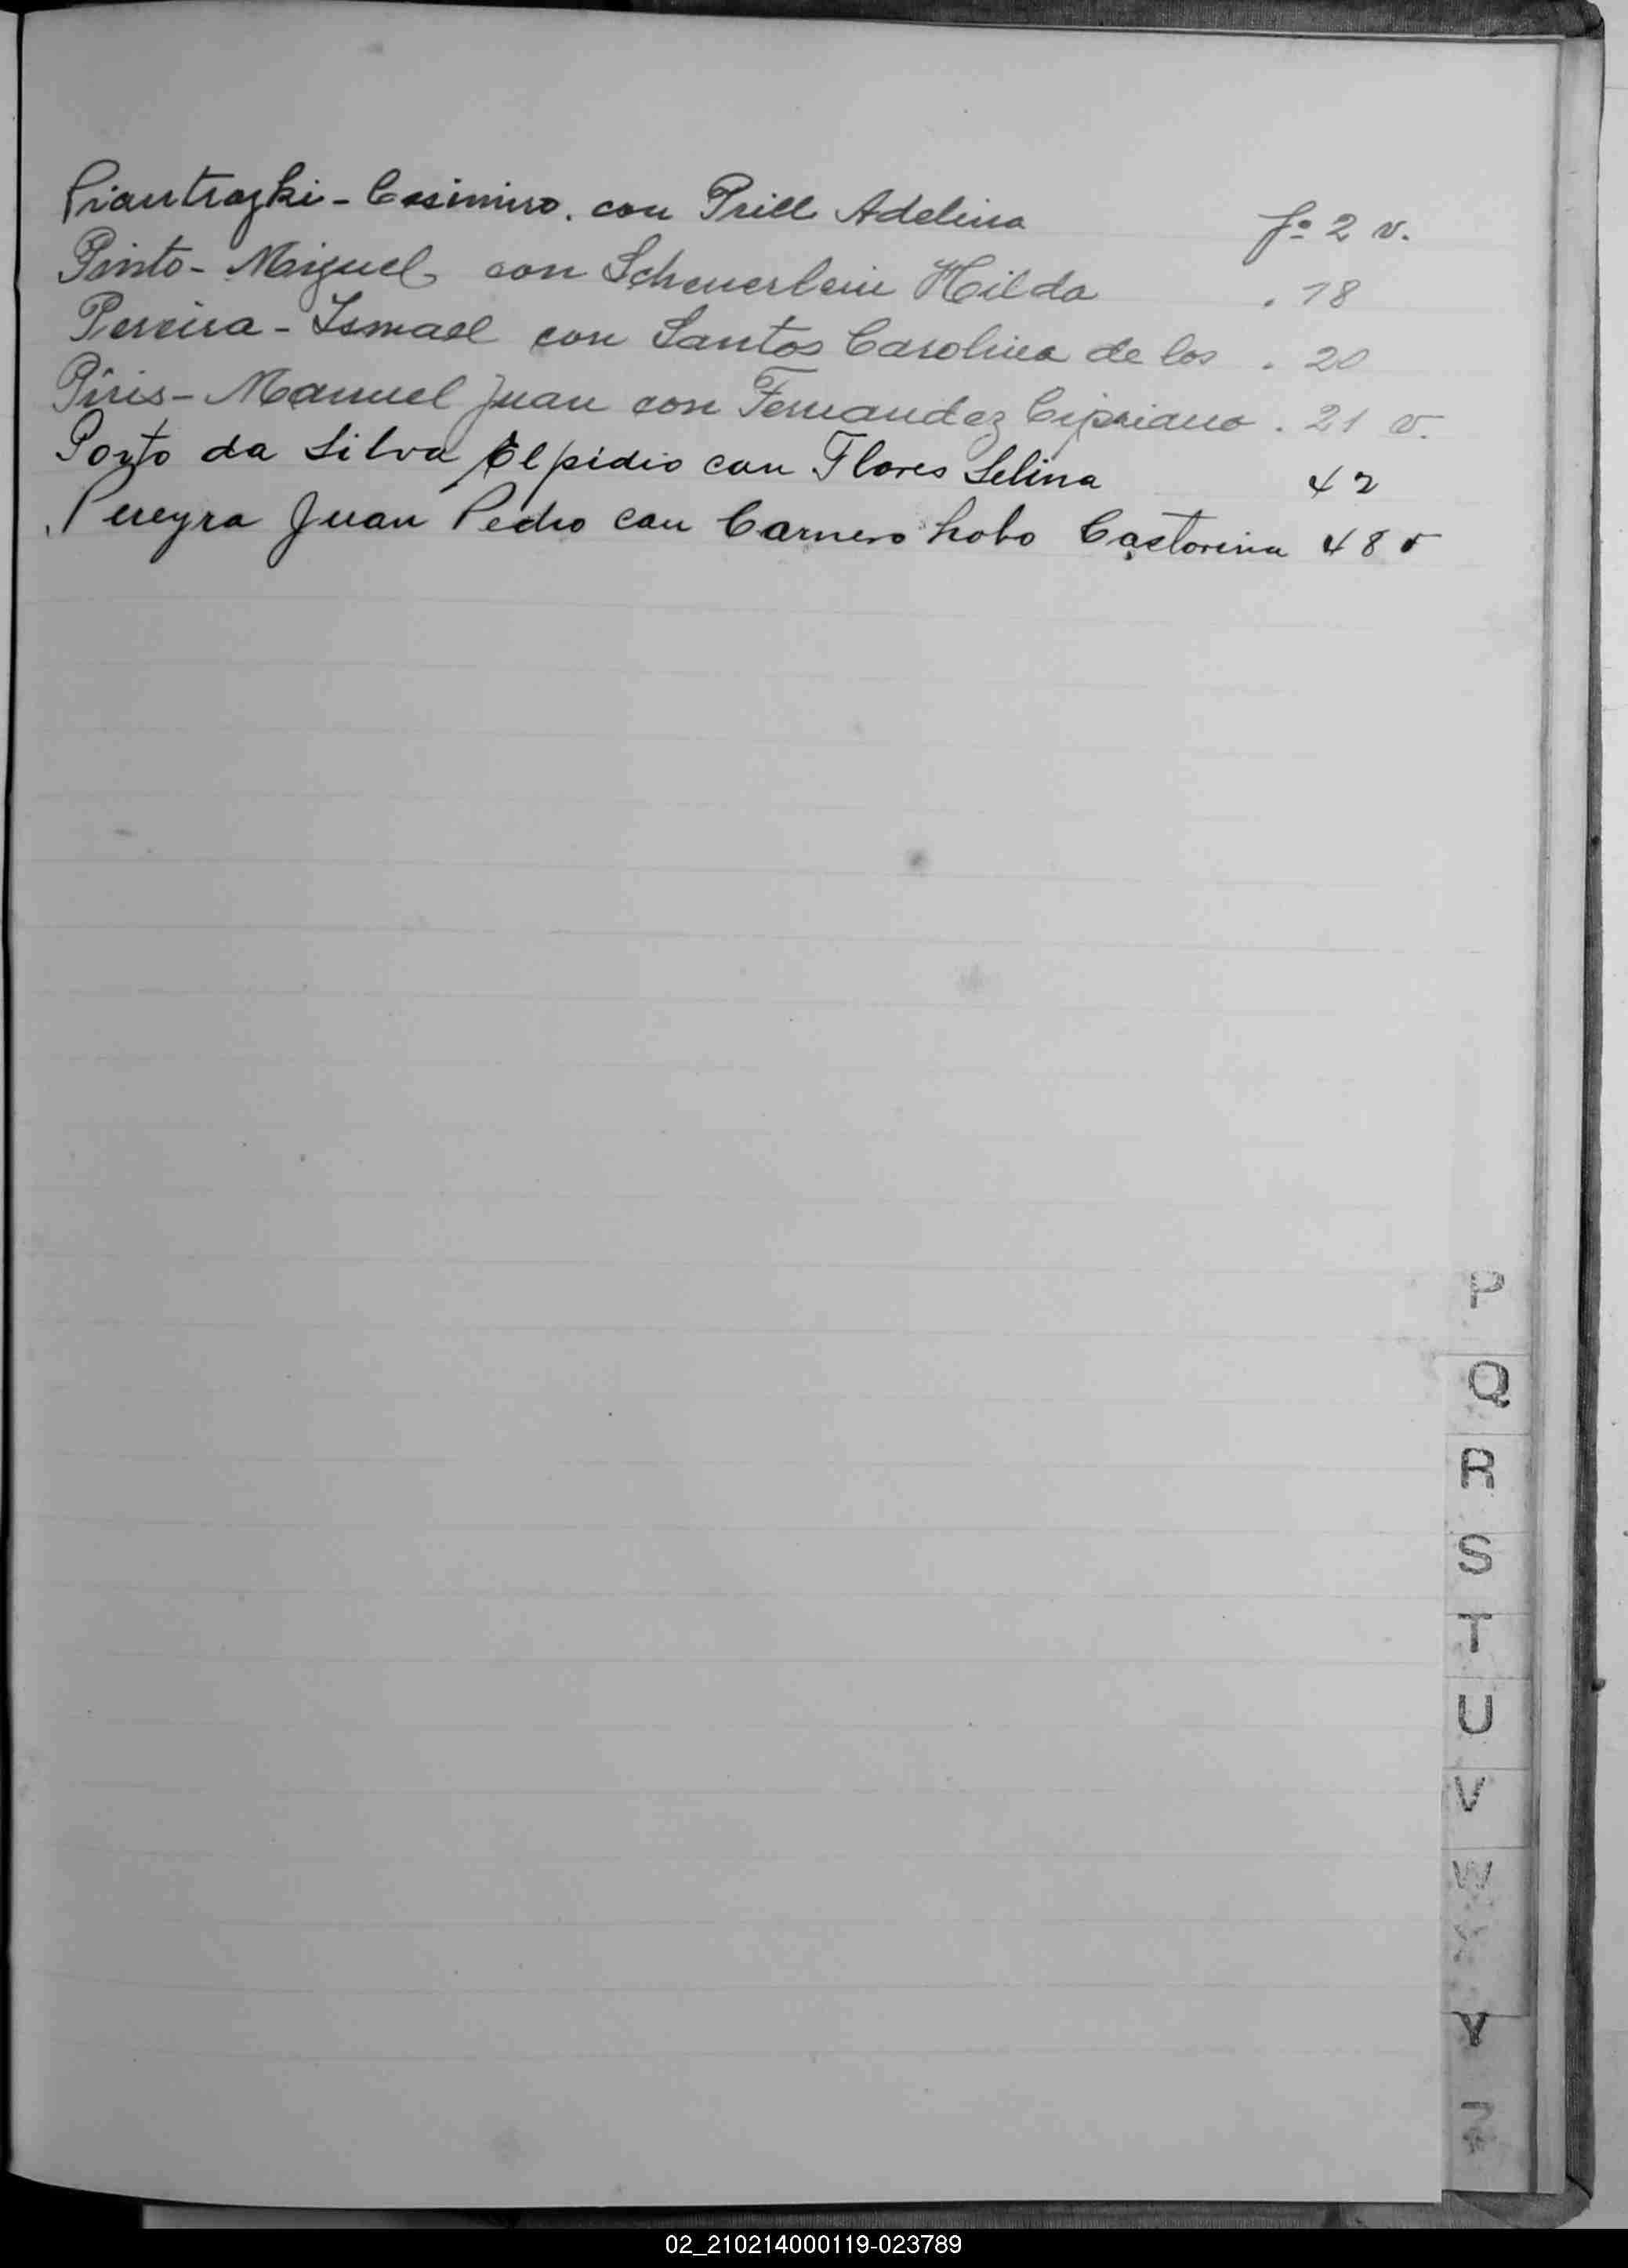 Piantrazki - Casimiro. con Prill Adelina fº 2 v.
Pinto - Miguel con Scheuerlein Hilda . 18
Pereira - Ismael con Santos Carolina de los . 20
Píris - Manuel Juan con Fernandez Cipriano . 21 v.
Porto da Silva Elpidio con Flores Selina 42
Pereyra Juan Pedro con Carnero Lobo Castorina 48 v
P
Q
R
S
T
U
V
W
X
Y
Z
02_210214000119-023789